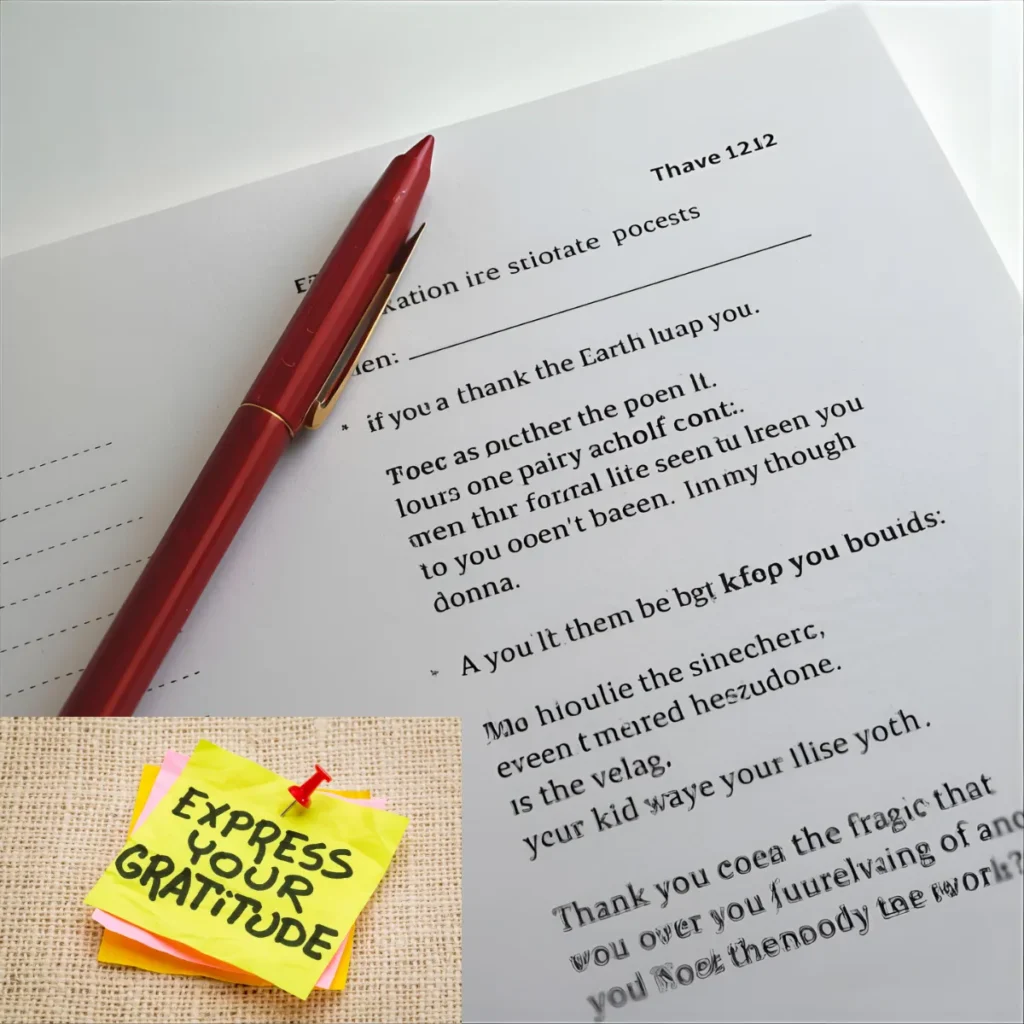 Thave 1212
kation ire striotate pocests
ien:
if you a thank the Earth luap you.
Toec as oucther the poen It.
lours one pairy acholf cont:.
thır forral lite seen tu lreen you
to you ooen't baeen. Inmy though
donna.
A you lt them be bgt kfop you bouids:
hioulie the sinecherc,
eveen t meıred heszudone.
ıs the velag.
ycur kid waye your Ilise yoth.
Thank you coea the fragic that
wou over you of
you the work?
EXPRESS
YOUR
GRATITUDE